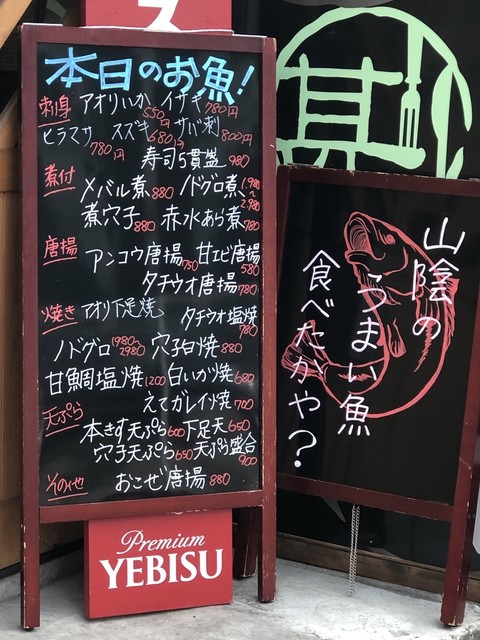 本日のお魚!
刺身 アオリいか 550円 イサキ 780円
ヒラマサ 780円 スズキ 680円 サバ刺 800円
寿司5貫盛 980
煮付 メバル煮 880 ノドグロ煮 1,980~2,980
煮穴子 880 赤水あら煮 780
唐揚 アンコウ唐揚 750 甘エビ唐揚 580
タチウオ唐揚 780
焼き アオリ下足焼 タチウオ塩焼 780
ノドグロ 1980~2980 穴子白焼 880
甘鯛塩焼 1200 白いか焼 680
えてガレイ焼 700
天ぷら
本きす天ぷら 600 下足天 650
穴子天ぷら 650 天ぷら盛合 900
その他 おこぜ唐揚 880
Premium
YEBISU
山陰の
うまい魚
食べたかや?